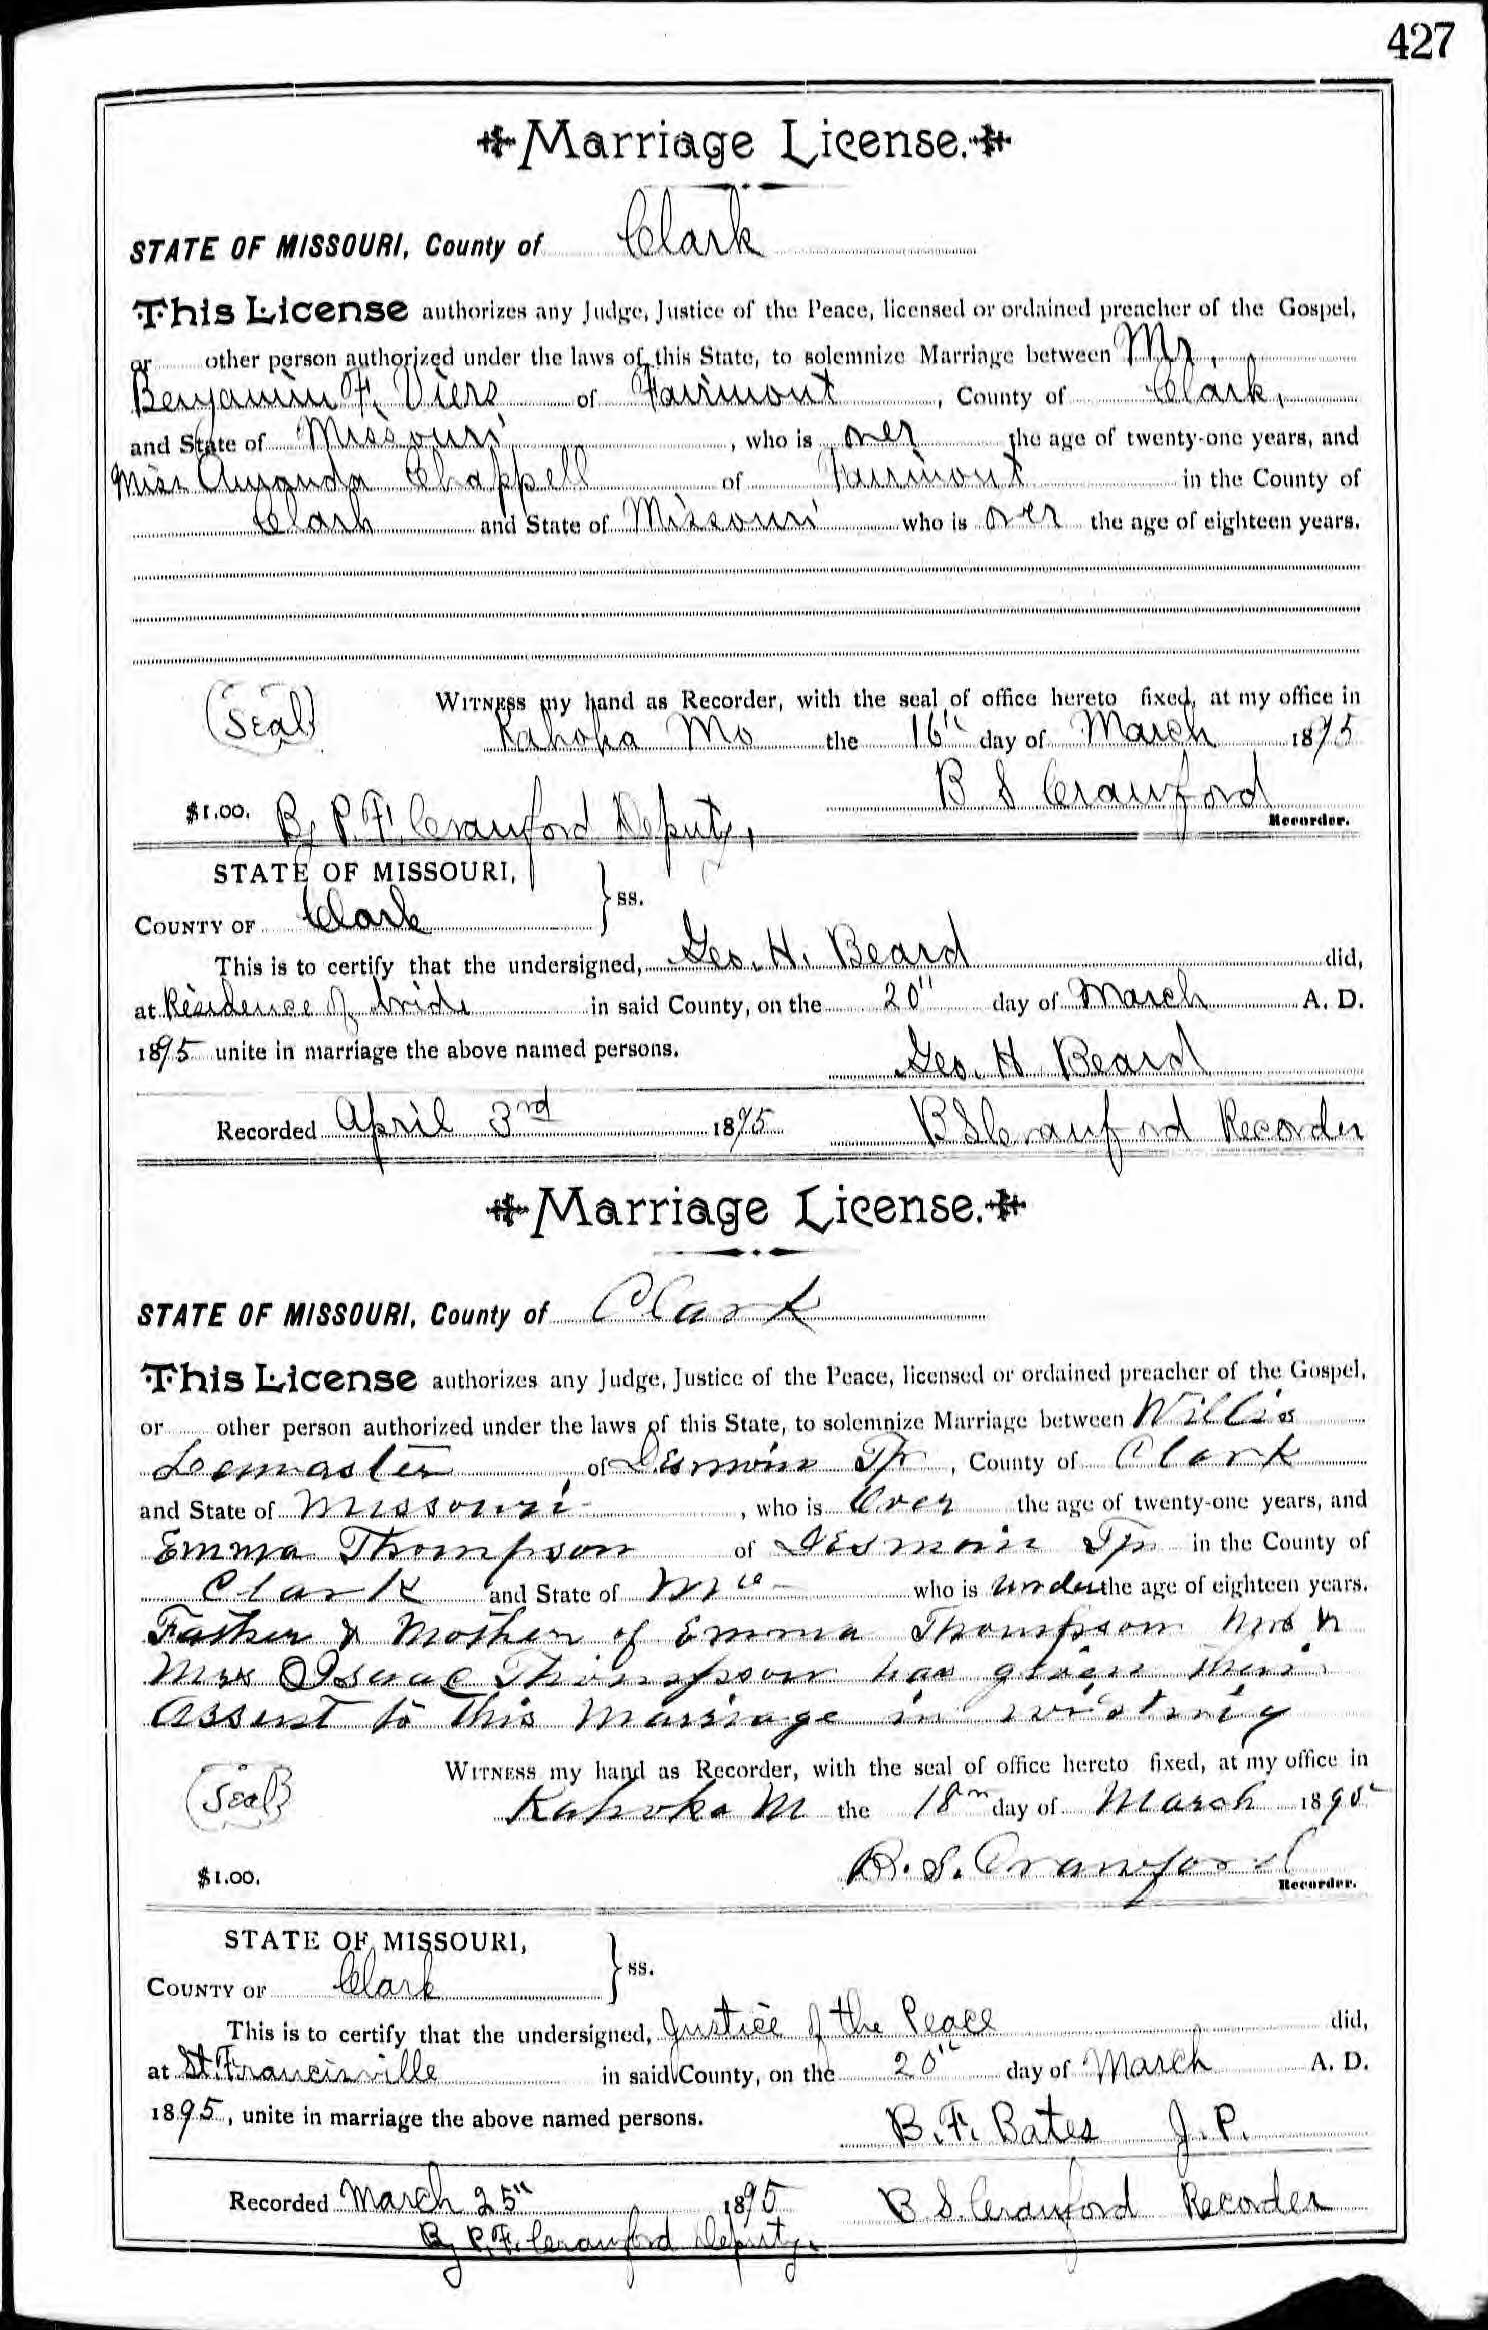 427
Marriage License.
STATE OF MISSOURI, County of Clark
This License authorizes any Judge, Justice of the Peace, licensed or ordained preacher of the Gospel,
or other person authorized under the laws of this State, to solemnize Marriage between Mr.
Benjamin F. Viers of Fairmont, County of Clark,
and State of Missouri, who is over the age of twenty-one years, and
Miss Amanda Chappell of Fairmont in the County of
Clark and State of Missouri who is over the age of eighteen years.
(Seal) WITNESS my hand as Recorder, with the seal of office hereto fixed, at my office in
Kahoka Mo the 16" day of March 1895
B S Crawford
$1.00. By P. F. Crawford Deputy, Recorder.
STATE OF MISSOURI,
COUNTY OF Clark } ss.
This is to certify that the undersigned, Geo. H. Beard did,
at Residence of bride in said County, on the 20" day of March A. D.
1895 unite in marriage the above named persons.
Geo. H Beard
Recorded April 3rd 1895 B S Crawford Recorder
Marriage License.
STATE OF MISSOURI, County of Clark
This License authorizes any Judge, Justice of the Peace, licensed or ordained preacher of the Gospel,
or other person authorized under the laws of this State, to solemnize Marriage between Willis
Lemaster of Desmoin Tp, County of Clark
and State of Missouri, who is Over the age of twenty-one years, and
Emma Thompson of Desmoin Tp in the County of
Clark and State of Mo who is under the age of eighteen years.
Father & Mother of Emma Thompson &
Mrs Isaac Thompson has given their
Assent to this Marriage in
(Seal) WITNESS my hand as Recorder, with the seal of office hereto fixed, at my office in
Kahoka M the 18 day of March 1895
B. S. Crawford
$1.00. Recorder.
STATE OF MISSOURI,
COUNTY OF Clark } ss.
This is to certify that the undersigned, Justice of the Peace did,
at St. Francisville in said County, on the 20" day of March A. D.
1895, unite in marriage the above named persons.
B. F. Bates J. P.
Recorded March 25" 1895 B. S. Crawford Recorder
By P. F. Crawford Deputy.